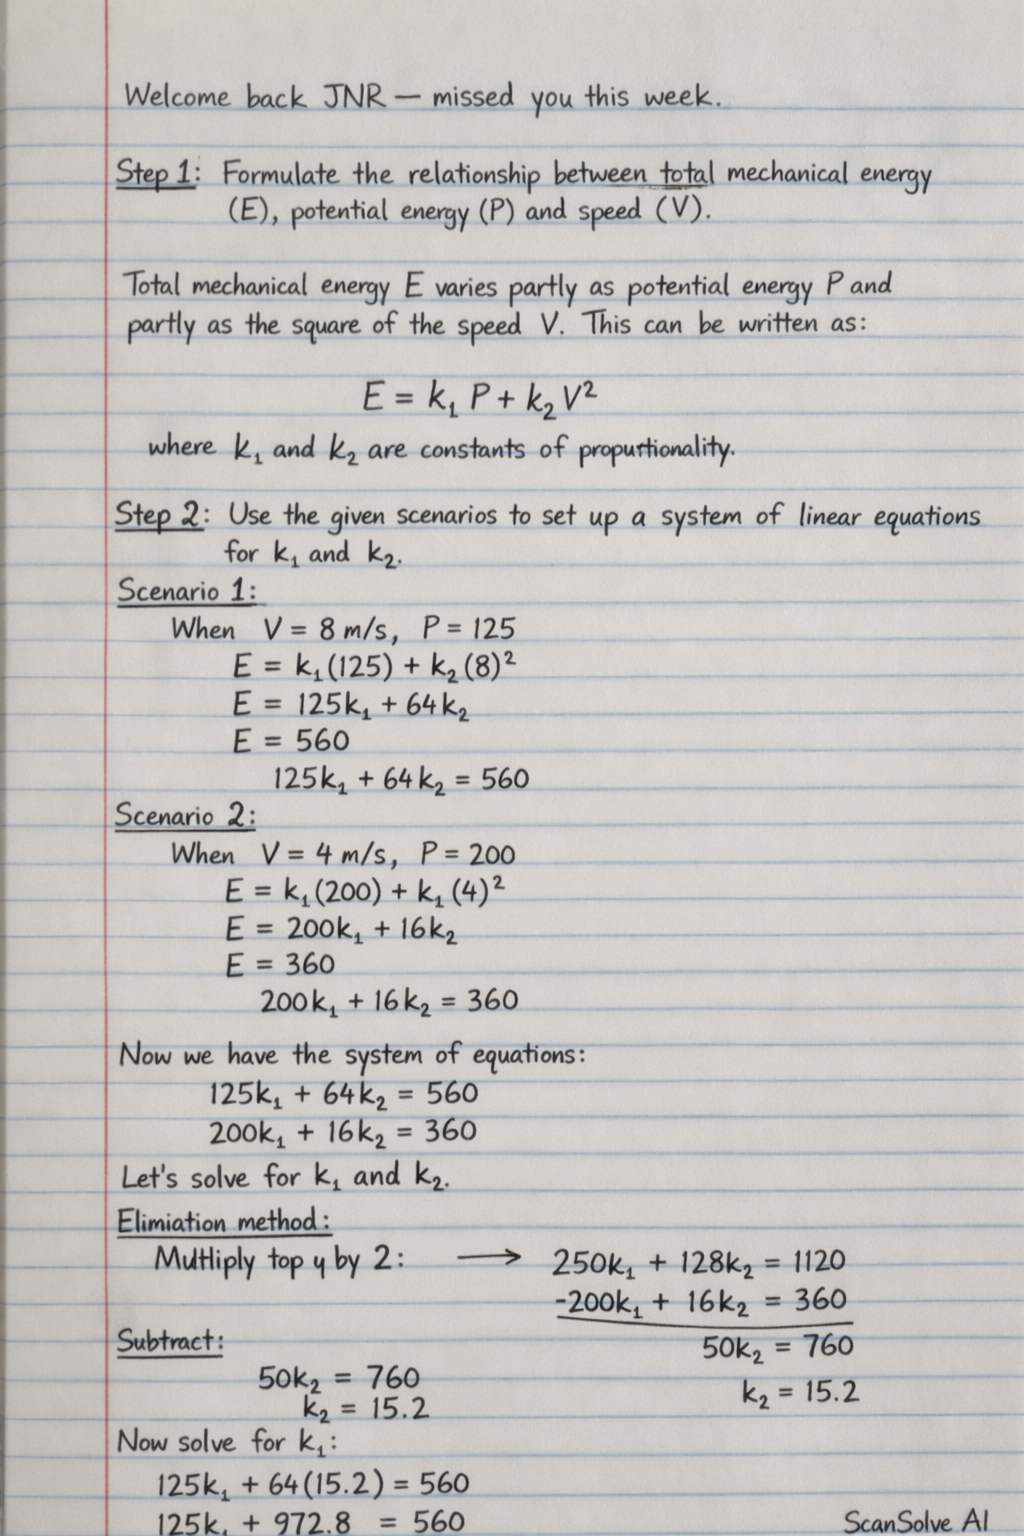 Welcome back JNR — missed you this week.
Step 1: Formulate the relationship between total mechanical energy
(E), potential energy (P) and speed (V).
Total mechanical energy E varies partly as potential energy P and
partly as the square of the speed V. This can be written as:
E = k₁ P + k₂ V²
where k₁ and k₂ are constants of propurtionality.
Step 2: Use the given scenarios to set up a system of linear equations
for k₁ and k₂.
Scenario 1:
When V = 8 m/s, P = 125
E = k₁(125) + k₂(8)²
E = 125k₁ + 64k₂
E = 560
125k₁ + 64k₂ = 560
Scenario 2:
When V = 4 m/s, P = 200
E = k₁(200) + k₁(4)²
E = 200k₁ + 16k₂
E = 360
200k₁ + 16k₂ = 360
Now we have the system of equations:
125k₁ + 64k₂ = 560
200k₁ + 16k₂ = 360
Let's solve for k₁ and k₂.
Elimiation method:
Multliply top y by 2: → 250k₁ + 128k₂ = 1120
-200k₁ + 16k₂ = 360
Subtract: 50k₂ = 760
50k₂ = 760
k₂ = 15.2
k₂ = 15.2
Now solve for k₁:
125k₁ + 64(15.2) = 560
125k₁ + 972.8 = 560
ScanSolve AI